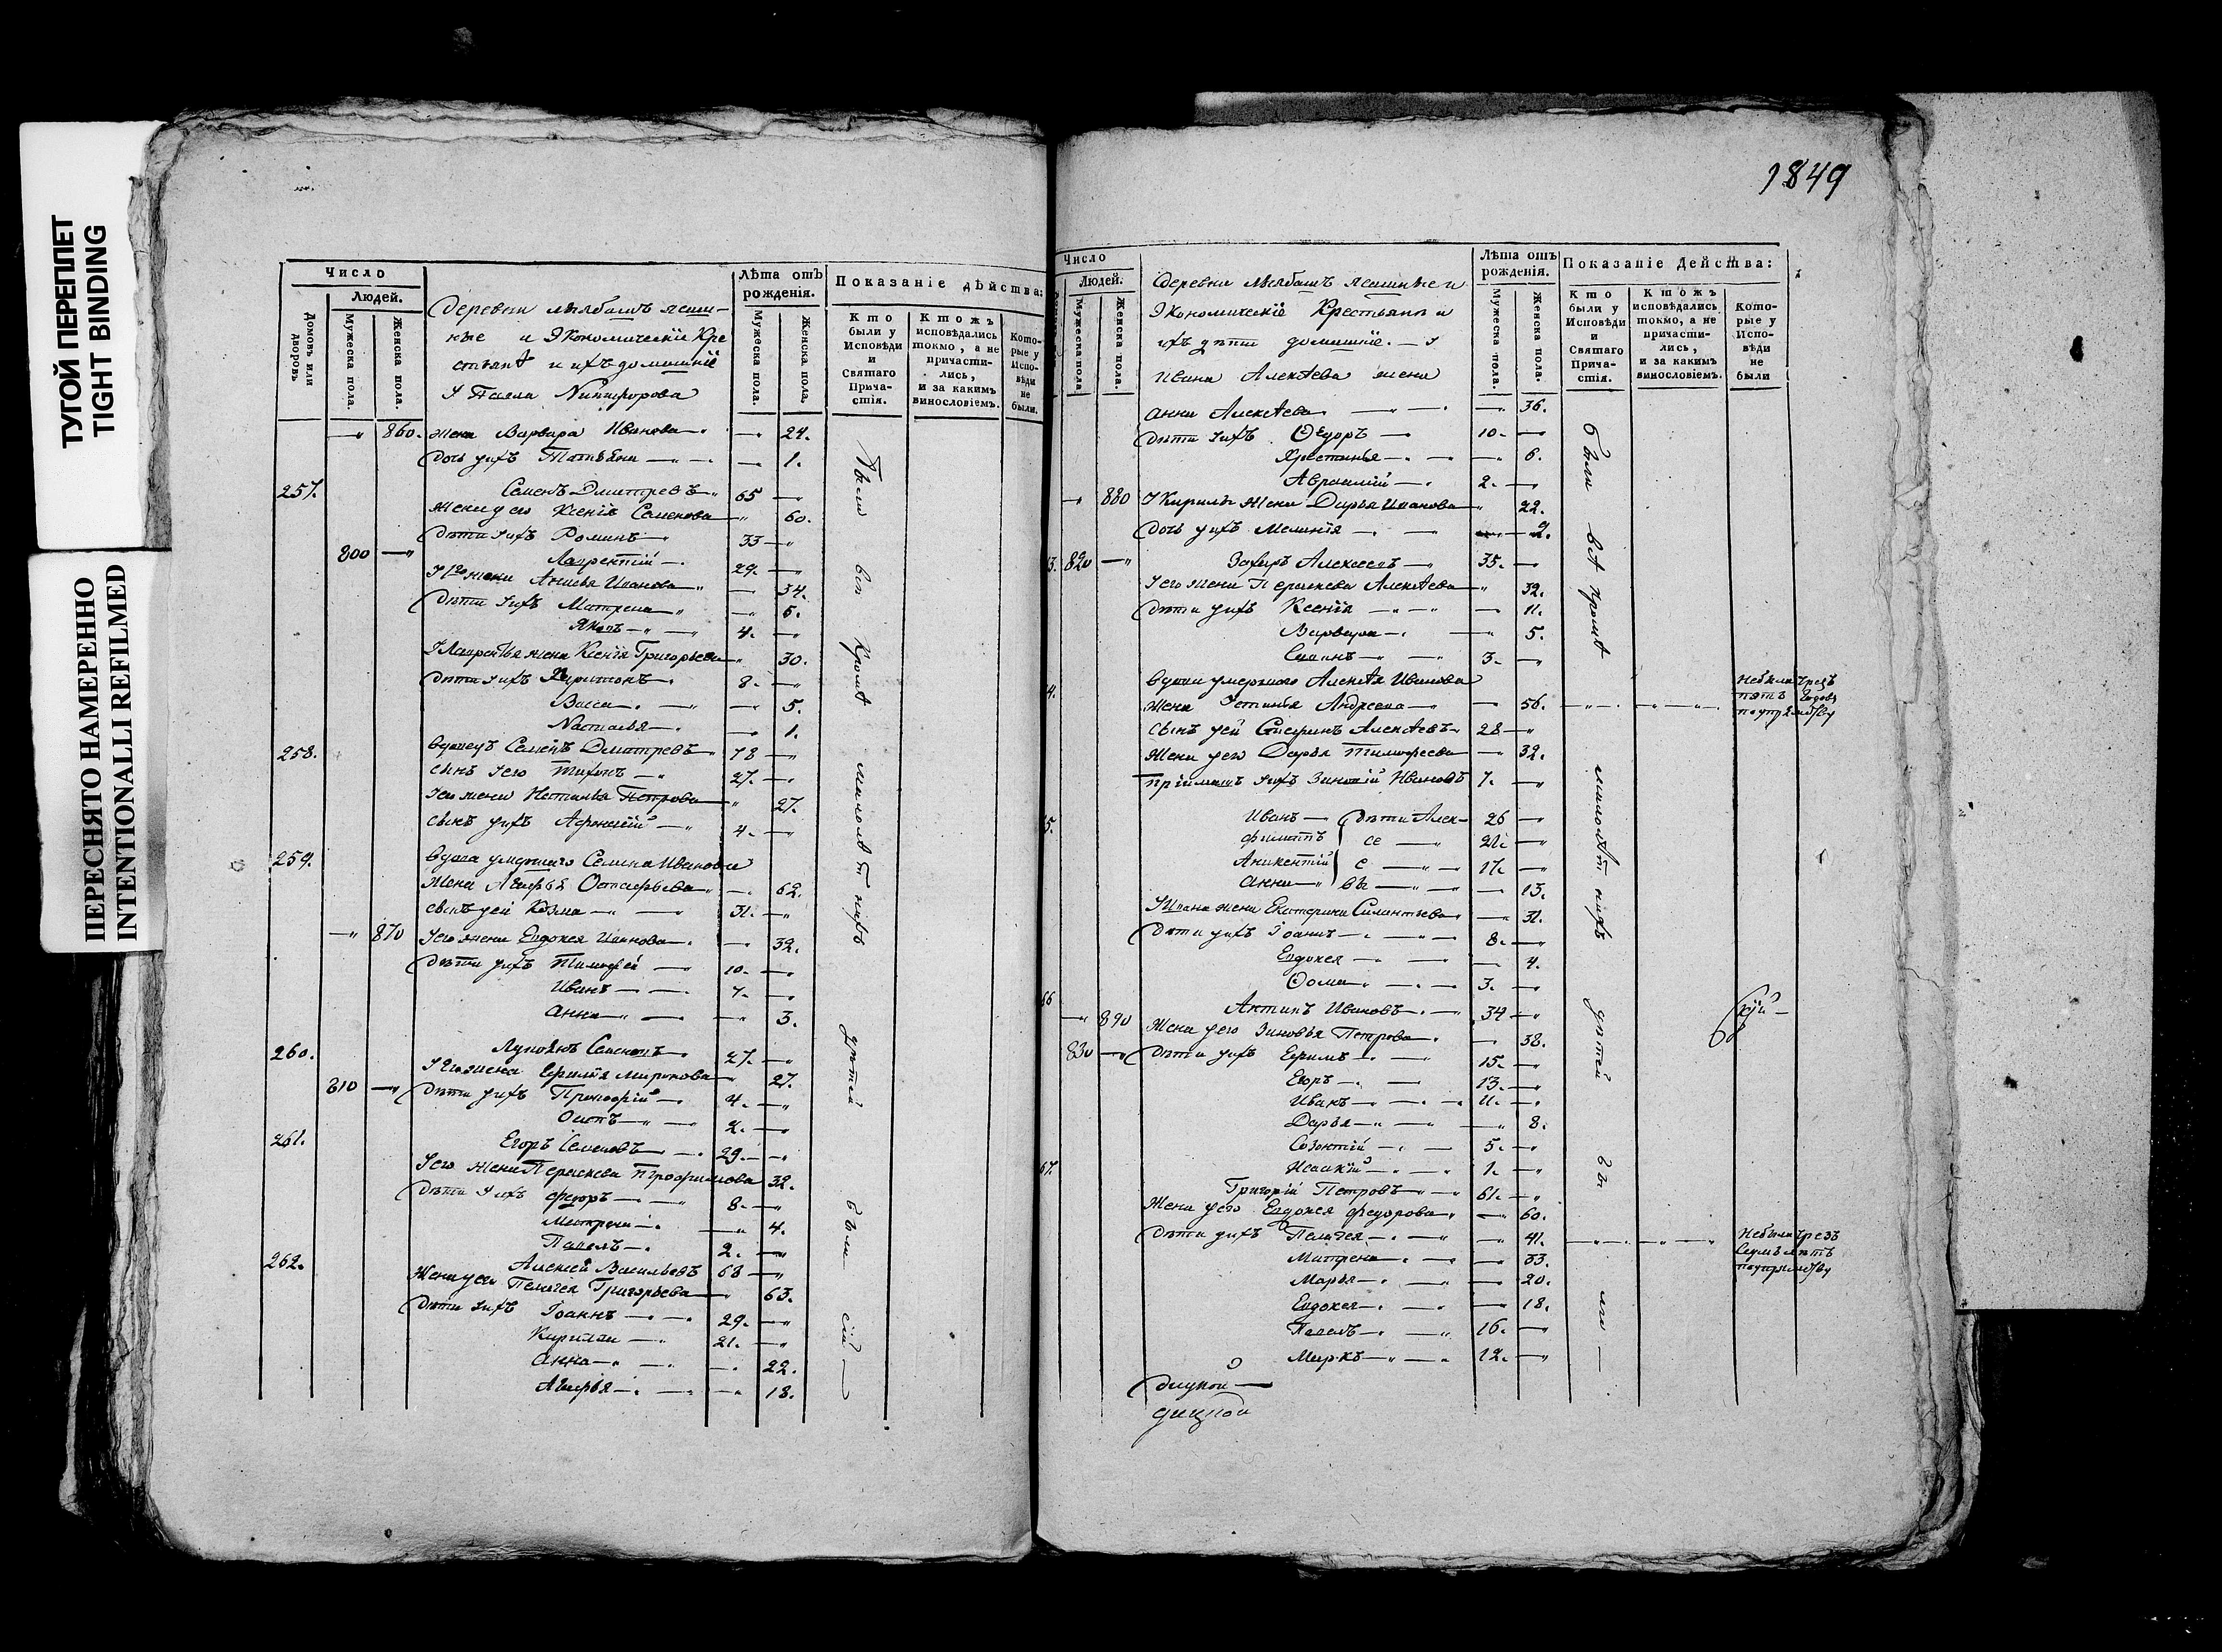 ТУГОЙ ПЕРЕПЛЕТ
TIGHT BINDING
ПЕРЕСНЯТО НАМЕРЕННО
INTENTIONALLI REFILMED
Число
Людей.
Домовъ или дворовъ
Мужеска пола.
Женска пола.
Деревни
и Экономическіи Кре
и ихъ домашніе
Лѣта отъ рожденія.
Мужеска пола.
Женска пола.
Показаніе дѣйства:
Кто были у Исповѣди и Святаго Причастія.
Ктожъ исповѣдались токмо, а не причастились, и за какимъ винословіемъ.
Которые у Исповѣди не были.
860. жена Варвара Иванова 24.
дочь ихъ Татьяна 1.
257. Семенъ Дмитревъ 65
жена его Ксенія Семенова 60.
дѣти ихъ Романъ 33
800 Лаврентій 29.
жени Иванова 34.
дѣти ихъ Матрена 6.
Яковъ 4.
Лаврентья жена Ксенія Григорьева 30.
дѣти ихъ Харитонъ 8.
Васса 5.
Настасья 1.
258. вдовецъ Семенъ Дмитревъ 78
сынъ его Тихонъ 27.
его жена Петрова 27.
сынъ ихъ Афонасій 4.
259. вдова умершаго Семена Иванова
жена Агафья 62.
сынъ ей Козма 31.
870 его жена Евдокея Иванова 32.
дѣти ихъ Тимофей 10.
Иванъ 7.
Анна 3.
260. Лукоянъ Семеновъ 27.
жена Миронова 27.
810 дѣти ихъ Прокофій 4.
Осипъ 2.
261. Егоръ Семеновъ 29.
его жена Параскева Трофимова 32.
дѣти ихъ Федоръ 8.
Матрена 4.
Павелъ 2.
262. Алексей Васильевъ 68
жена его Пелагея Григорьева 63.
дѣти ихъ Іоаннъ 29.
Кирилъ 21.
Анна 22.
Агафья 18.
были всѣ кромѣ малолѣтнихъ дѣтей были
1849
Число
Людей.
Мужеска пола
Женска пола.
Деревни
Экономическіе Крестьяня и
ихъ дѣти домашніе.
Ивана Алексѣева жена
Лѣта отъ рожденія.
Мужеска пола.
Женска пола.
Показаніе Действа:
Кто были у Исповѣди и Святаго Причастія.
Ктожъ исповѣдались токмо, а не причастились, и за какимъ винословіемъ.
Которые у Исповѣди не были
Анна Алексѣева 36.
дѣти ихъ Ѳедоръ 10.
Хрестинья 6.
2.
880 Кирилы жена Дарья Иванова 22.
дочь ихъ Меланія 2.
3. 820 Захаръ Алексеевъ 35.
его жена Параскева Алексѣева 32.
дѣти ихъ Ксенія 11.
Варвара 5.
3.
4. вдова умершаго Алексѣя Иванова
жена Устинья Андреева 56.
Небыла чрезъ
пять годовъ
сынъ ей Алексѣевъ 28
жена его Дарья Тимофеева 32.
пріимышъ ихъ Зиновій Ивановъ 7.
5. Иванъ дѣти Алек- 26
Филиппъ се 21.
Аникентій е 17.
Анна въ 13.
Ивана жена Екатерина Силантьева 31.
дѣти ихъ Іоаннъ 8.
Евдокея 4.
Ѳома 3.
66 Антипъ Ивановъ 34
890 жена его Зиновья Петрова 38.
830 дѣти ихъ Ефимъ 15.
Егоръ 13.
Иванъ 11.
Дарья 8.
Созонтій 5.
Исакій 1.
67. Григорій Петровъ 61.
жена его Евдокея Федорова 60.
дѣти ихъ Пелагея 41.
Небыла чрезъ
семь лѣтъ
Матрена 33.
Марья 20.
Евдокея 18.
Павелъ 16.
Маркъ 12.
были всѣ кромѣ малолѣтнихъ дѣтей были